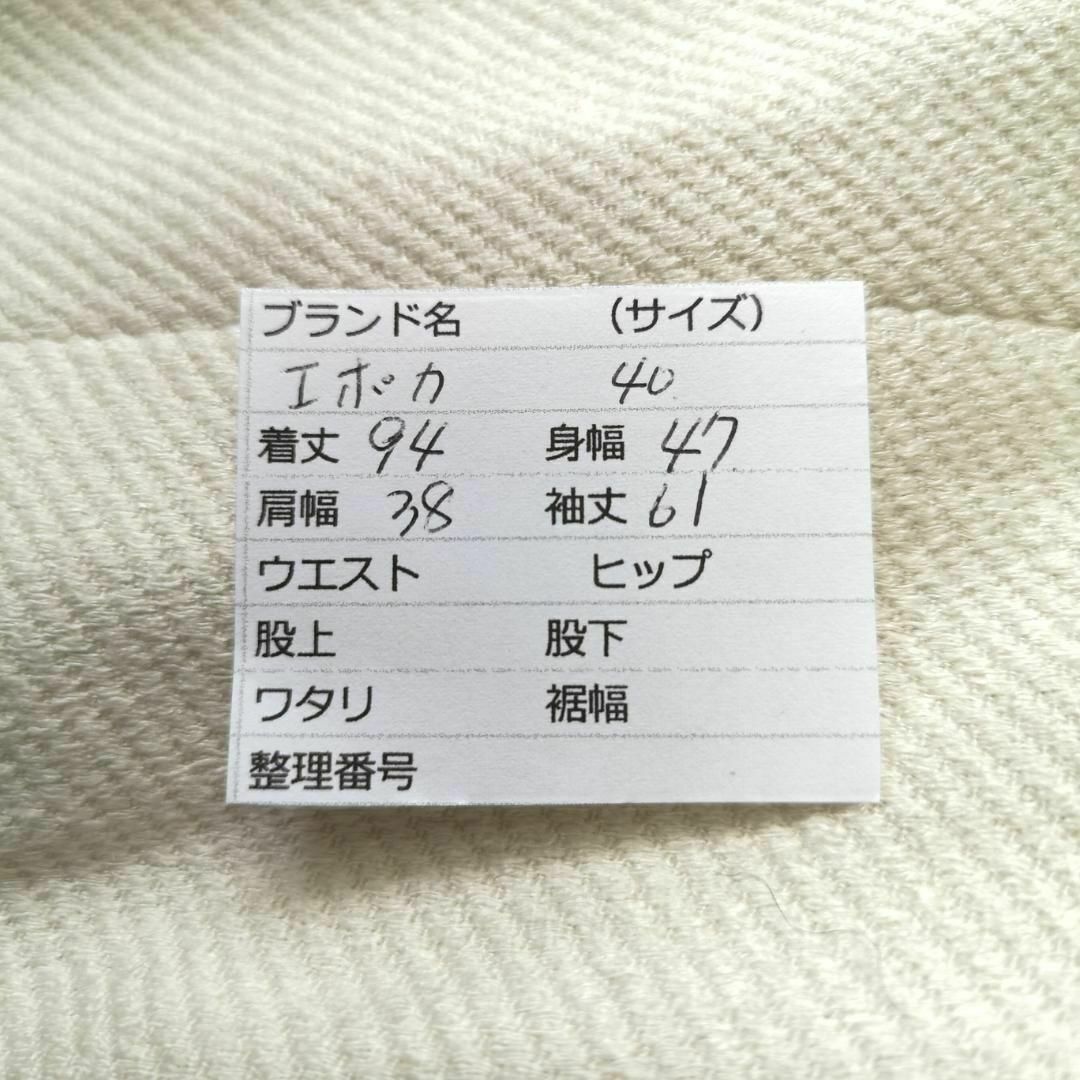 ブランド名 （サイズ）
エポカ 40
着丈 94 身幅 47
肩幅 38 袖丈 61
ウエスト ヒップ
股上 股下
ワタリ 裾幅
整理番号